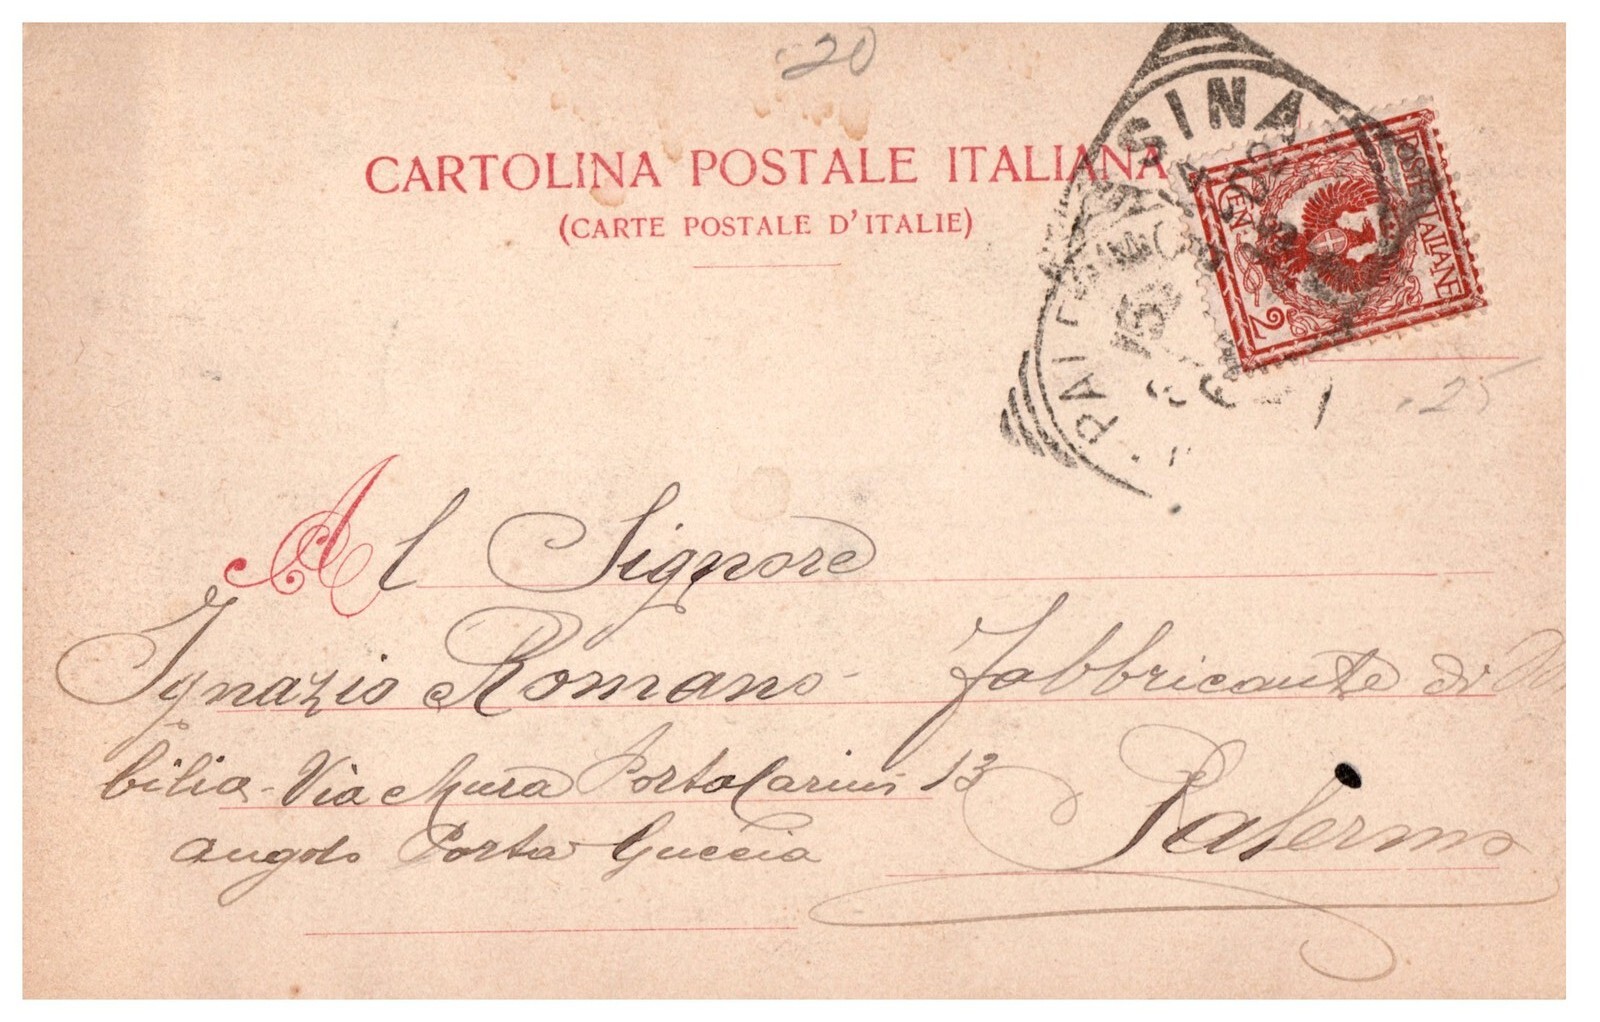 .20
CARTOLINA POSTALE ITALIANA
(CARTE POSTALE D'ITALIE)
POSTE ITALIANE
CEN. 2
.25
Al Signore
Ignazio Romano fabbricante di Mo
bilia - Via Mura Porta Carini 13
angolo Porta Guccia
Palermo